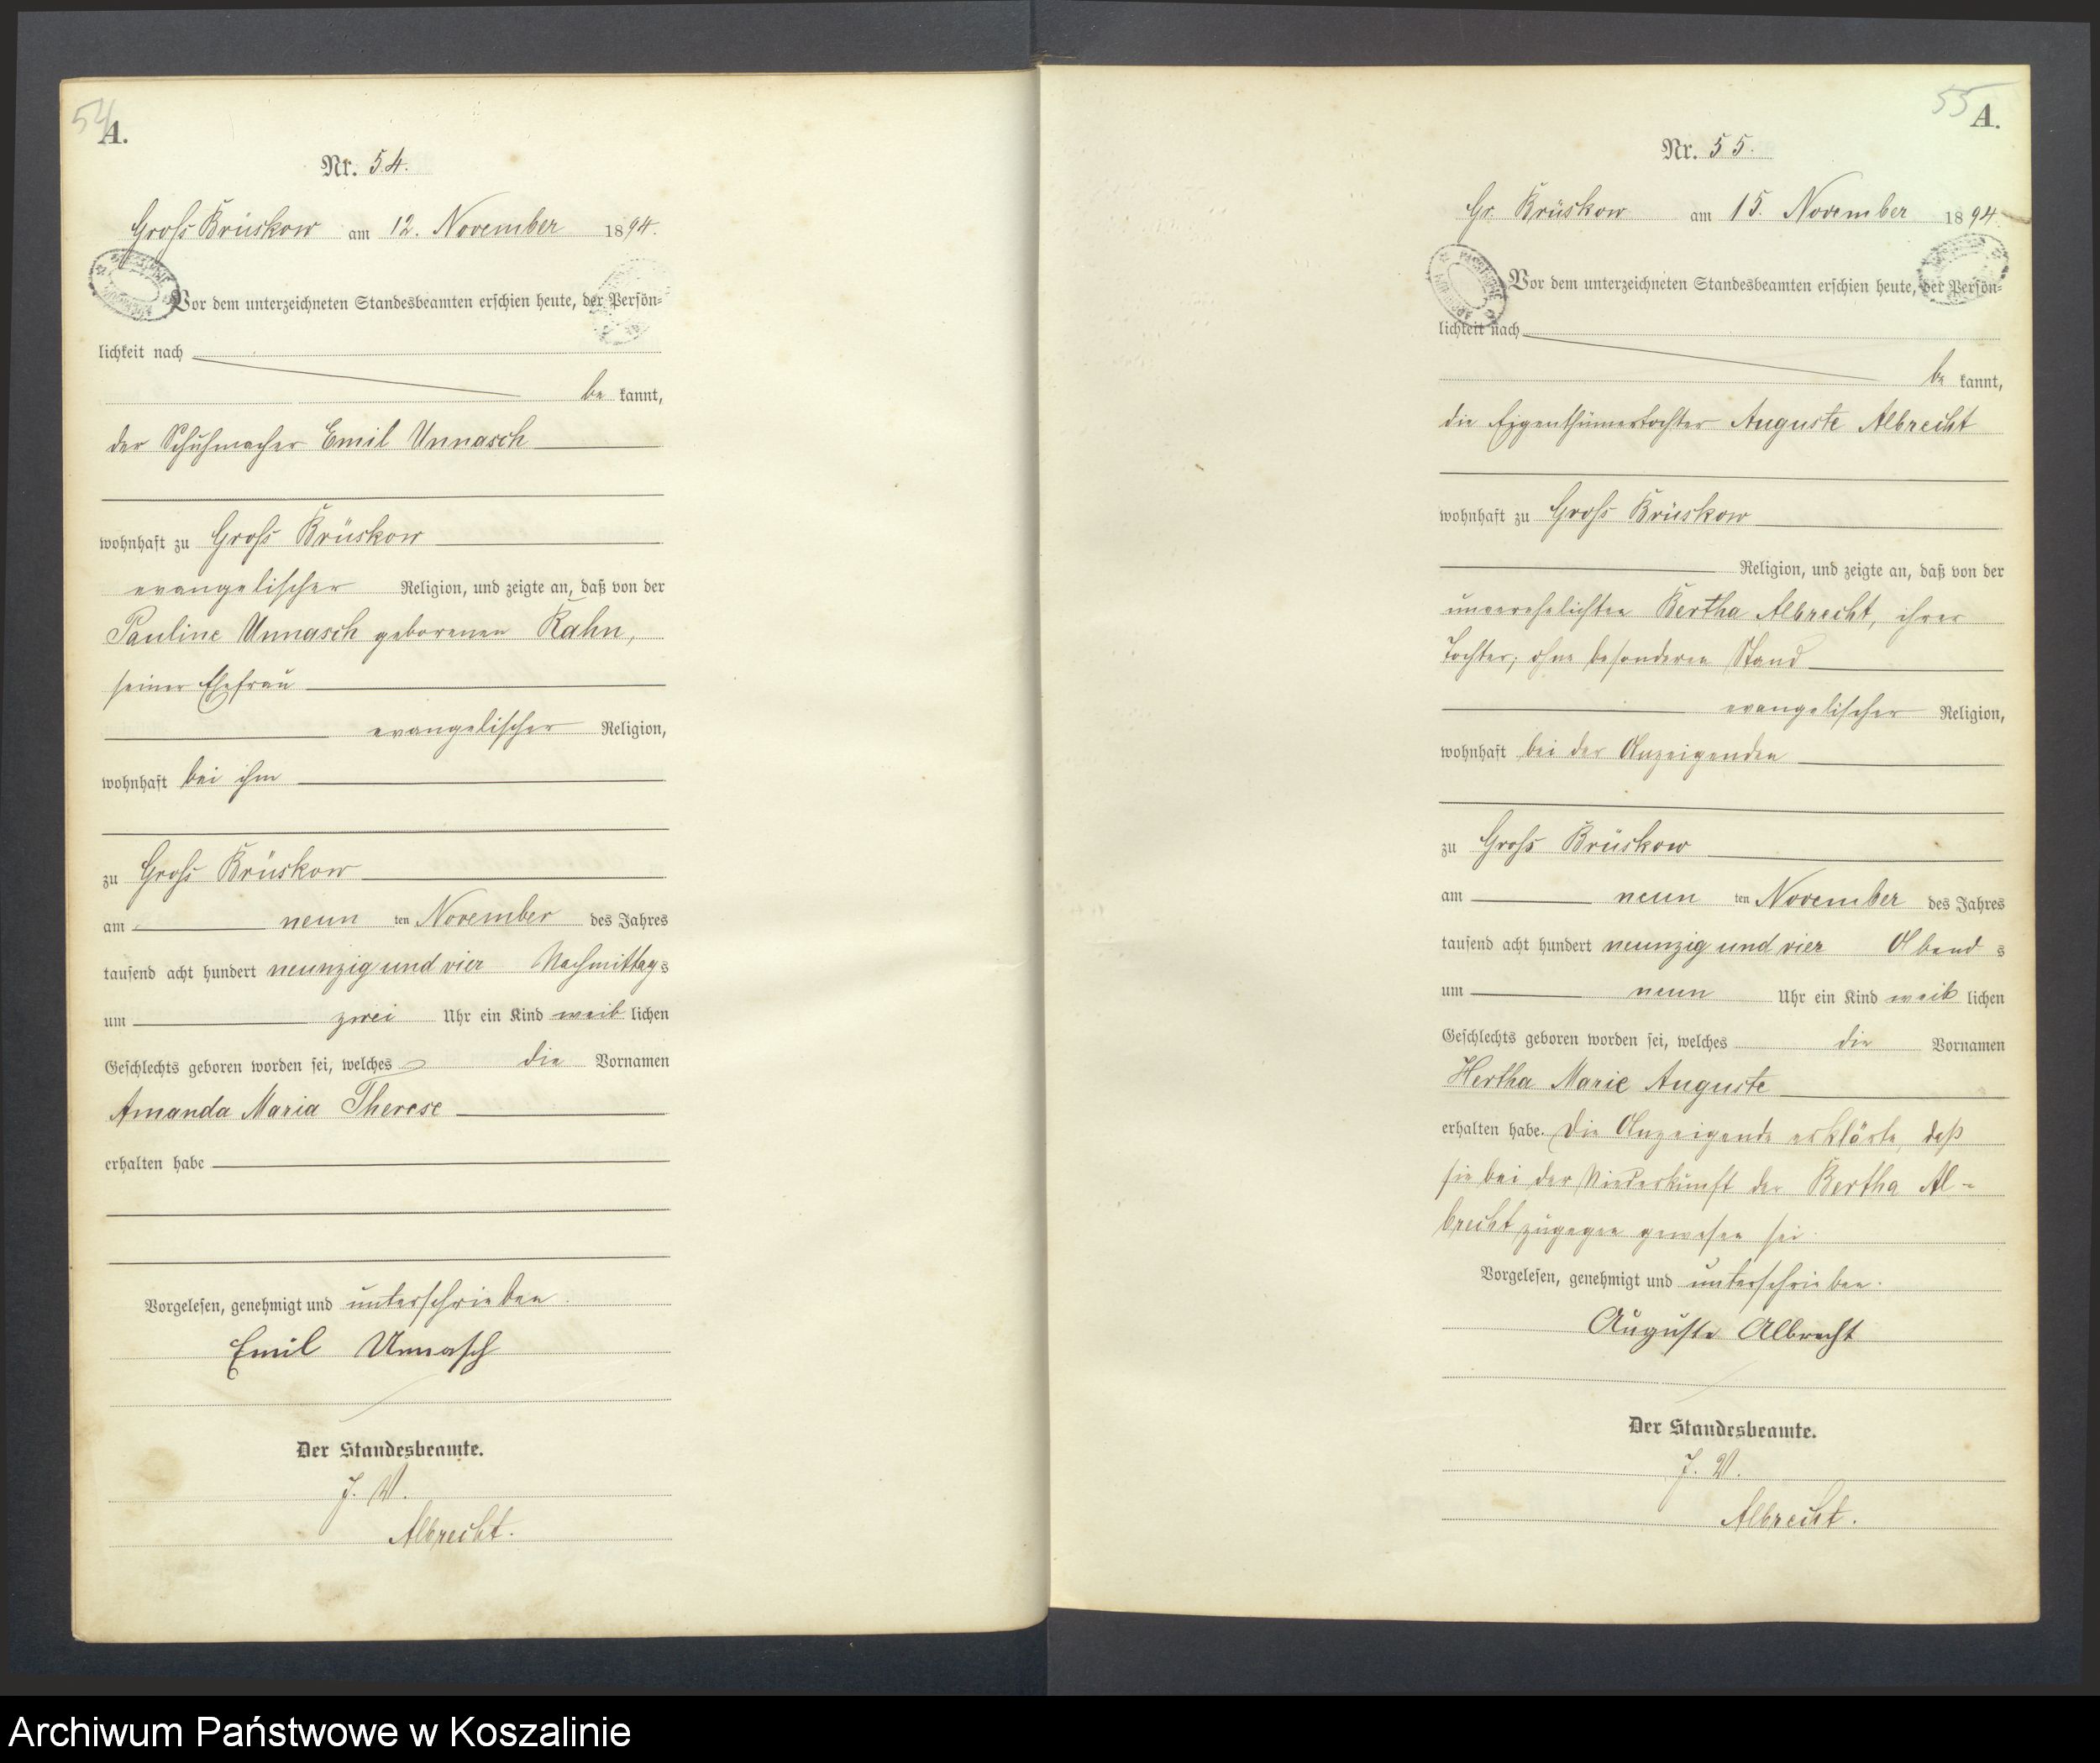 54
A.
Nr. 54.
Groß Brüskow am 12. November 1894.
Vor dem unterzeichneten Standesbeamten erschien heute, der Persön=
lichkeit nach
be kannt,
der Schuhmacher Emil Unnasch
wohnhaft zu Groß Brüskow
evangelischer Religion, und zeigte an, daß von der
Pauline Unnasch geborenen Kahn,
seiner Ehefrau
evangelischer Religion,
wohnhaft bei ihm
zu Groß Brüskow
am neun ten November des Jahres
tausend acht hundert neunzig und vier Nachmittag s
um zwei Uhr ein Kind weib lichen
Geschlechts geboren worden sei, welches die Vornamen
Amanda Maria Therese
erhalten habe
Vorgelesen, genehmigt und unterschrieben.
Emil Unnasch
Der Standesbeamte.
J. V.
Albrecht.
55
A.
Nr. 55.
Gr. Brüskow am 15. November 1894.
Vor dem unterzeichneten Standesbeamten erschien heute, der Persön=
lichkeit nach
be kannt,
die Eigenthümertochter Auguste Albrecht
wohnhaft zu Groß Brüskow
Religion, und zeigte an, daß von der
unverehelichten Bertha Albrecht, ihrer
Tochter, ohne besonderen Stand
evangelischer Religion,
wohnhaft bei der Anzeigenden
zu Groß Brüskow
am neun ten November des Jahres
tausend acht hundert neunzig und vier Abend s
um neun Uhr ein Kind weib lichen
Geschlechts geboren worden sei, welches die Vornamen
Hertha Marie Auguste
erhalten habe. Die Anzeigende erklärte, daß
sie bei der Niederkunft der Bertha Al-
brecht zugegen gewesen sei.
Vorgelesen, genehmigt und unterschrieben.
Auguste Albrecht
Der Standesbeamte.
J. V.
Albrecht.
Archiwum Państwowe w Koszalinie